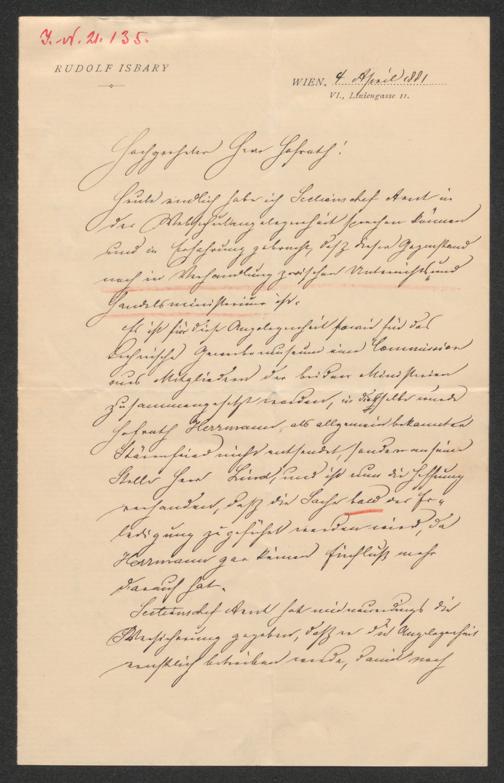 I. N. 21.135.
RUDOLF ISBARY
WIEN, 4 April 1881
VI., Liniengasse 11.
Hochgeehrter Herr Hofrath!
Heute endlich habe ich Sectionschef Arnt in
der Webschulangelegenheit sprechen können
und in Erfahrung gebracht, daß dieser Gegenstand
noch in Verhandlung zwischen Unterrichts- und
Handelsministerium ist.
Es ist für diese Angelegenheit sowie für das
technische Gewerbemuseum eine Commission
aus Mitgliedern der beiden Ministerien
zusammengesetzt worden, in dieselbe wurde
Hofrath Herrmann, als allgemein bekannter
Störenfried nicht entsendet, sondern an seine
Stelle Herr Lind, und ist nun die Hoffnung
vorhanden, daß die Sache bald der Er-
ledigung zugeführt werden wird, da
Herrmann gar keinen Einfluß mehr
darauf hat.
Sectionschef Arnt hat mir neuerdings die
Versicherung gegeben, daß er die Angelegenheit
ernstlich betreiben werde, damit noch